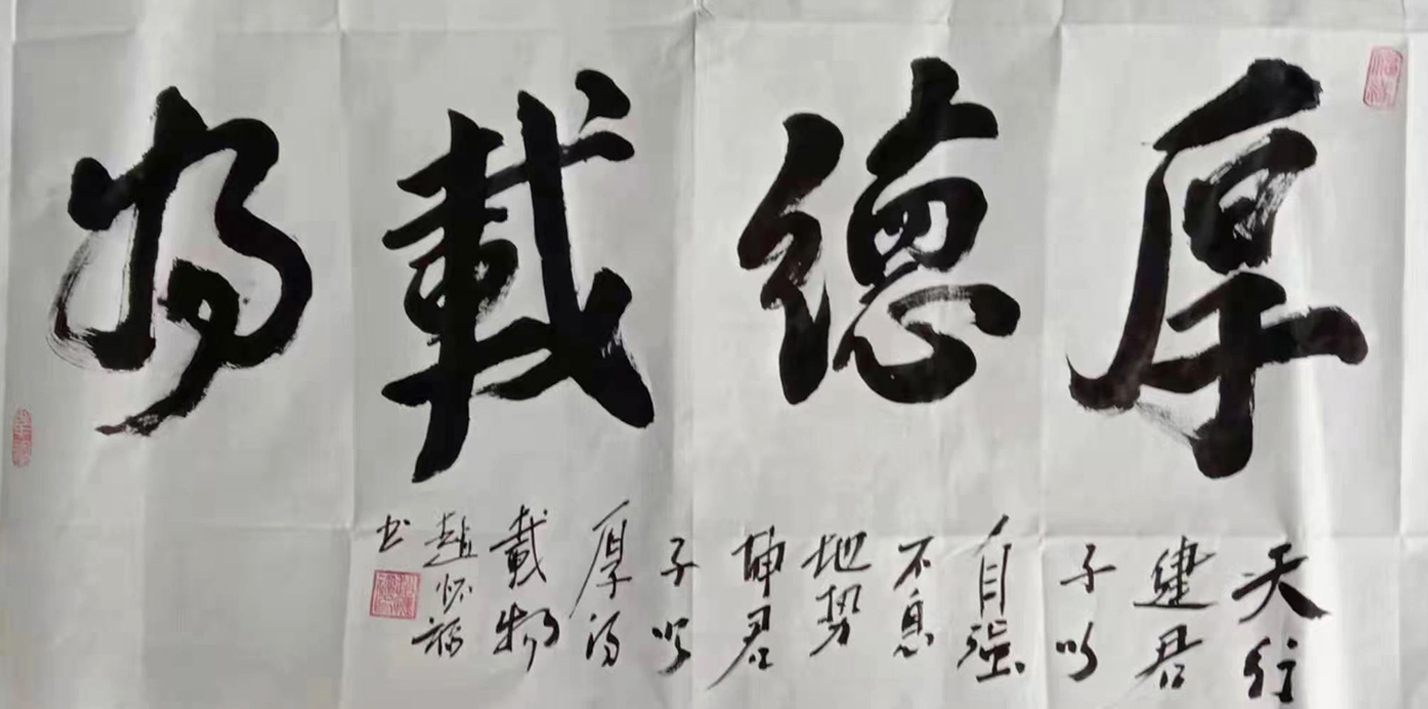 厚德載物
天行
建君
子以
自强
不息
地势
坤君
子以
厚德
載物
赵怀
书